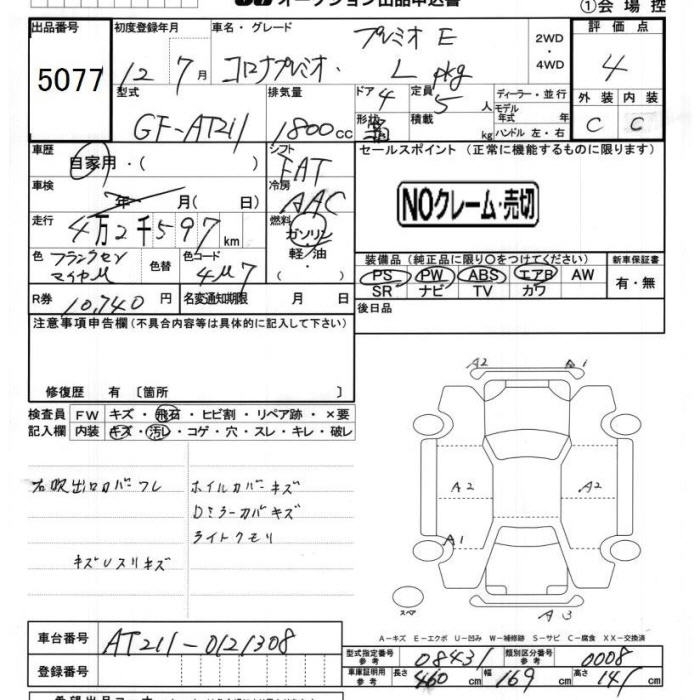 オークション出品申込書
①会場控
出品番号
5077
初度登録年月
12 7月
車名・グレード
プレミオ E
コロナプレミオ・ L pkg
2WD
・
4WD
評価点
4
外装 内装
C C
型式
GF-AT211
排気量
1800cc
ドア
4
定員
5人
形状
積載
kg
ディーラー・並行
モデル
年式 年
ハンドル 左・右
車歴
自家用・( )
シフト
FAT
車検
年 月( 日)
冷房
AAC
走行
4万2千597km
燃料
ガソリン
軽/油
・( )
色
色替
色コード
4M7
R券
10,740円
名変通知期限
月 日
セールスポイント (正常に機能するものに限ります)
NOクレーム・売切
装備品(純正品に限り○をつけてください)
新車保証書
PS PW ABS エアB AW
SR ナビ TV カワ
有・無
後日品
注意事項申告欄(不具合内容等は具体的に記入して下さい)
修復歴 有 〔箇所 〕
検査員
記入欄
FW キズ・飛石・ヒビ割・リペア跡・×要
内装 キズ・汚レ・コゲ・穴・スレ・キレ・破レ
右吹出口カバーワレ
キズリスリキズ
ホイルカバーキズ
Dミラーカバキズ
ライトクモリ
A2
A1
A2
A2
A1
スペア
A3
A-キズ E-エクボ U-凹み W-補修跡 S-サビ C-腐食 XX-交換済
車台番号
AT211-0121308
登録番号
型式指定番号
参考
08431
類別区分番号
参考
0008
車庫証明用
参考
長さ
460cm
幅
169cm
高さ
141cm